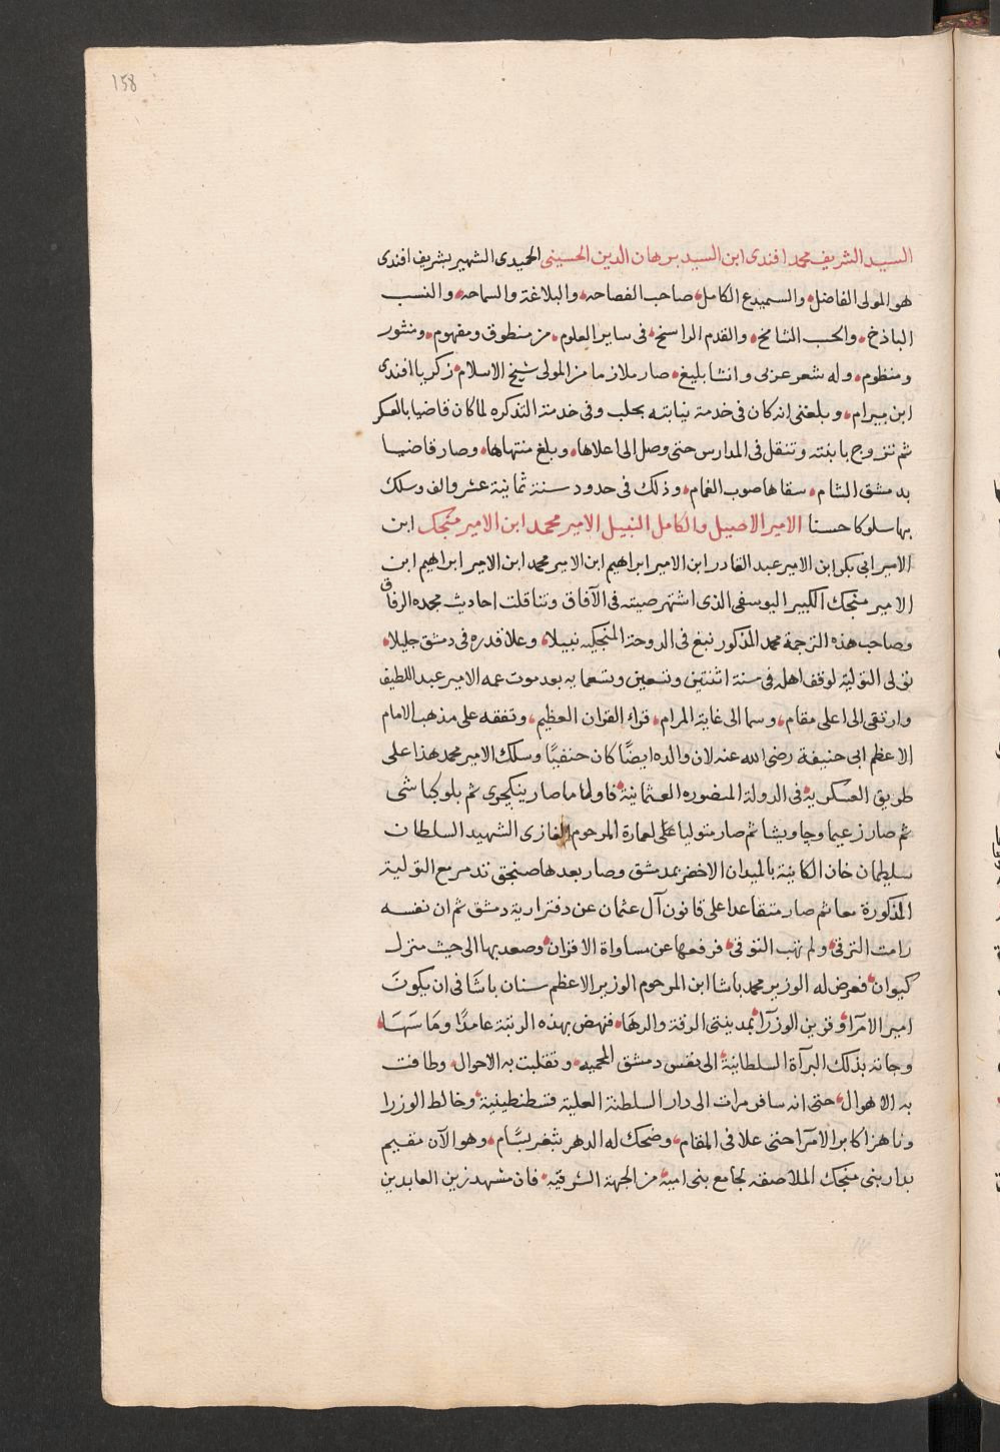 158
السيد الشريف محمد افندى ابن السيد برهان الدين الحسينى الحميدى الشهير بشريف افندى
هو المولى الفاضل والسميدع الكامل صاحب الفصاحه والبلاغة والسماحه والنسب
الباذخ والحسب الشامخ والقدم الراسخ فى ساير العلوم من منطوق ومفهوم ومنثور
ومنظوم وله شعر عربى وانشا بليغ صار ملازما من المولى شيخ الاسلام زكريا افندى
ابن بيرام وبلغنى انه كان فى خدمة نيابته بحلب وفى خدمة التذكره لما كان قاضيا بالعسكر
ثم تزوج بابنته وتنقل فى المدارس حتى وصل الى اعلاها وبلغ منتهاها وصار قاضيا
بدمشق الشام سقاها صوب الغمام وذلك فى حدود سنة ثمانية عشر والف وسلك
بها سلوكا حسنا الامير الاصيل والكامل النبيل الامير محمد ابن الامير منجك ابن
الامير ابى بكر ابن الامير عبد القادر ابن الامير ابراهيم ابن الامير محمد ابن الامير ابراهيم ابن
الامير منجك الكبير اليوسفى الذى اشتهر صيته فى الآفاق وتناقلت احاديث مجده الرفاق
وصاحب هذه الترجمة محمد المذكور نبغ فى الدوحة المنجكيه نبيلا وعلا قدره فى دمشق جليلا
تولى التولية لوقف اهله فى سنة اثنتين وتسعين وتسعمايه بعد موت عمه الامير عبد اللطيف
وارتقى الى اعلى مقام وسما الى غاية المرام قراء القران العظيم وتفقه على مذهب الامام
الاعظم ابى حنيفة رضى الله عنه لان والده ايضًا كان حنفيًا وسلك الامير محمد هذا على
طريق العسكرية فى الدولة المنصوره العثمانية فاول ما صار ينكجرى ثم بلوكباشى
ثم صار زعيما وجاويشا ثم صار متوليا على لعمارة المرحوم الغازى الشهيد السلطان
سليمان خان الكاينة بالميدان الاخضر بدمشق وصار بعدها صنجق تدمر مع التولية
المذكورة معا ثم صار متقاعدا على قانون آل عثمان عن دفتر ارية دمشق ثم ان نفسه
رامت الترقى ولم تهب التوقى فرفعها عن مساواة الاقران وصعد بها الى حيث منزل
كيوان فعرض له الوزير محمد باشا ابن المرحوم الوزير الاعظم سنان باشا فى ان يكونَ
امير الامرآ وقرين الوزرآ بمدينتى الرقة والرها فنهض بهذه الرتبة عامدًا وما سَهَا
وجاته بذلك البرآة السلطانية الى نفس دمشق المحميه وتقلبت به الاحوال وطافت
به الاهوال حتى انه سافر مرات الى دار السلطنة العلية قسطنطينية وخالط الوزرا
وناهز اكابر الامرآ حتى علا فى المقام وضحك له الدهر بثغر بسَّام وهو الآن مقيم
بدار بنى منجك الملاصقه لجامع بنى امية من الجهة الشرقيه فان مشهد زين العابدين